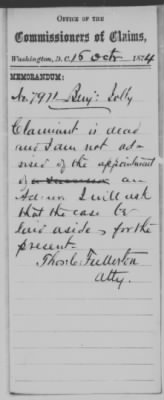 OFFICE OF THE
Commissioners of Claims,
Washington, D.C., 16 Octr, 1874
MEMORANDUM:
No. 7971 Benj: Solly
Claimant is dead
and I am not ad-
vised of the appointment
of an
Ad-mr. I will ask
that the case be
laid aside, for the
present.
Thos. C. Fullerton
Atty.